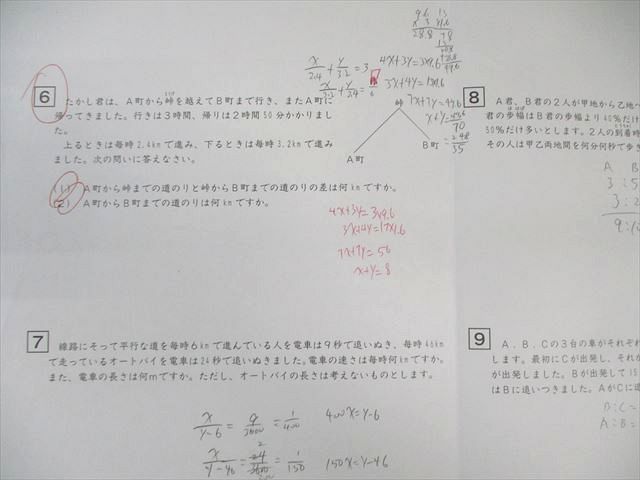 6
たかし君は、A町から峠を越えてB町まで行き、またA町に
帰ってきました。行きは3時間、帰りは2時間50分かかりまし
た。
上るときは毎時2.4kmで進み、下るときは毎時3.2kmで進み
ました。次の問いに答えなさい。
(1) A町から峠までの道のりと峠からB町までの道のりの差は何kmですか。
(2) A町からB町までの道のりは何kmですか。
峠
A町
B町
x/2.4 + y/3.2 = 3
4x+3y=3×9.6
3x+4y=17×1.6
7x+7y=56
x+y=8
7
線路にそって平行な道を毎時6kmで進んでいる人を電車は9秒で追いぬき、毎時46km
で走っているオートバイを電車は24秒で追いぬきました。電車の速さは毎時何kmですか。
また、電車の長さは何mですか。ただし、オートバイの長さは考えないものとします。
x/y-6 = 9/3600 = 1/400 400x=y-6
150x=y-46
8
A君、B君の2人が甲地から乙地
君の歩幅はB君の歩幅より40%だけ
50%だけ多いとします。2人の到着時
その人は甲乙両地間を何分何秒で歩き
A B
3:5
3:2
9
A、B、Cの3台の車がそれぞれ
します。最初にCが出発し、それか
が出発しました。Bが出発して15
はBに追いつきました。AがCに追
B:C=
A:B=